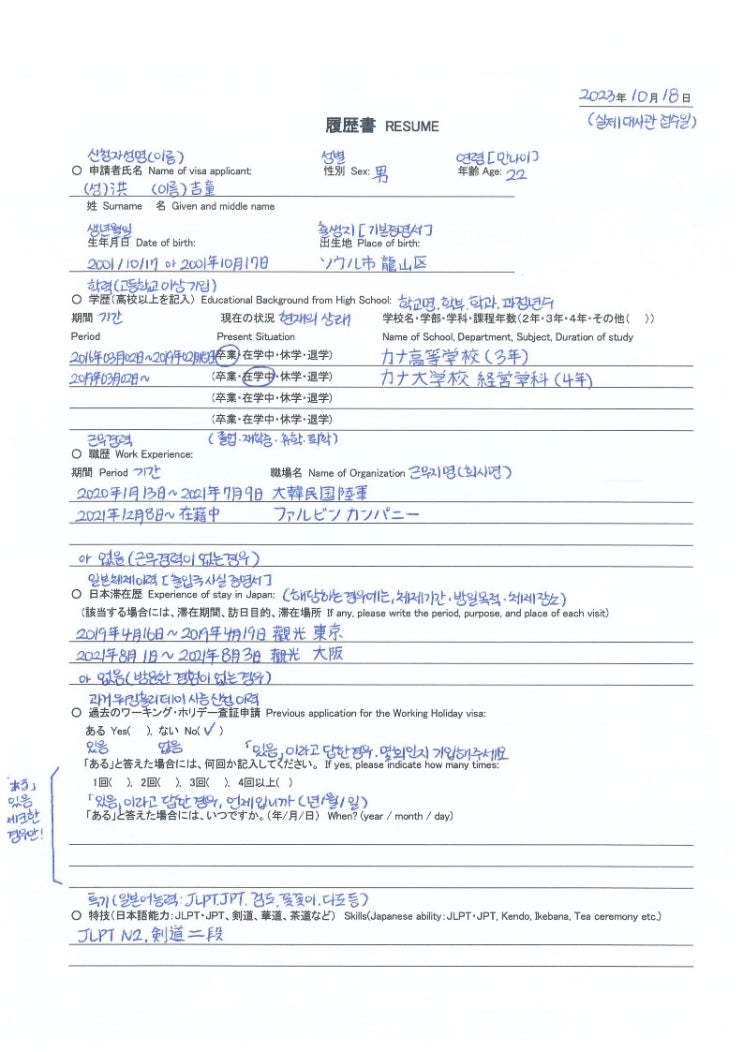 2023年 10月 18日
(실제 대사관 접수일)
履歴書 RESUME
신청자성명(이름) 성별 연령[만나이]
○ 申請者氏名 Name of visa applicant: 性別 Sex: 男 年齢 Age: 22
(성)洪 (이름)吉童
姓 Surname 名 Given and middle name
생년월일 출생지[기본증명서]
生年月日 Date of birth: 出生地 Place of birth:
2001/10/17 or 2001年10月17日 ソウル市 龍山区
학력(고등학교 이상 기입)
○ 学歴(高校以上を記入) Educational Background from High School: 학교명.학부.학과.과정년수
期間 기간 現在の状況 현재의 상태 学校名・学部・学科・課程年数(2年・3年・4年・その他( ))
Period Present Situation Name of School, Department, Subject, Duration of study
2016年03月02日~2019年02月 (卒業・在学中・休学・退学) カナ高等学校 (3年)
2019年03月02日~ (卒業・在学中・休学・退学) カナ大学校 経営学科 (4年)
(卒業・在学中・休学・退学)
(卒業・在学中・休学・退学)
근무경력 (졸업.재학중.휴학.퇴학)
○ 職歴 Work Experience:
期間 Period 기간 職場名 Name of Organization 근무지명(회사명)
2020年1月13日~2021年7月9日 大韓民国陸軍
2021年12月8日~在籍中 ファルビン カンパニー
or 없음(근무경력이 없는경우)
일본체재이력[출입국사실증명서]
○ 日本滞在歴 Experience of stay in Japan: (해당하는경우에는, 체제기간・방일목적・체제장소)
(該当する場合には、滞在期間、訪日目的、滞在場所 If any, please write the period, purpose, and place of each visit)
2019年4月16日~2019年4月19日 観光 東京
2021年8月1日~2021年8月3日 観光 大阪
or 없음(방문한 경험이 없는경우)
과거 워킹홀리데이 사증신청이력
○ 過去のワーキング・ホリデー査証申請 Previous application for the Working Holiday visa:
ある Yes( ). ない No(✓)
있음 없음 「있음」이라고 답한경우. 몇회인지 기입해주세요
「ある」と答えた場合には、何回か記入してください。 If yes, please indicate how many times:
1回( ). 2回( ). 3回( ). 4回以上( )
「ある」 있음 체크한 경우만!
「있음」이라고 답한경우, 언제입니까(년/월/일)
「ある」と答えた場合には、いつですか。(年/月/日) When? (year / month / day)
특기(일본어능력: JLPT.JPT. 검도. 꽃꽂이.다도등)
○ 特技(日本語能力:JLPT・JPT、剣道、華道、茶道など) Skills(Japanese ability: JLPT・JPT, Kendo, Ikebana, Tea ceremony etc.)
JLPT N2, 剣道 二段